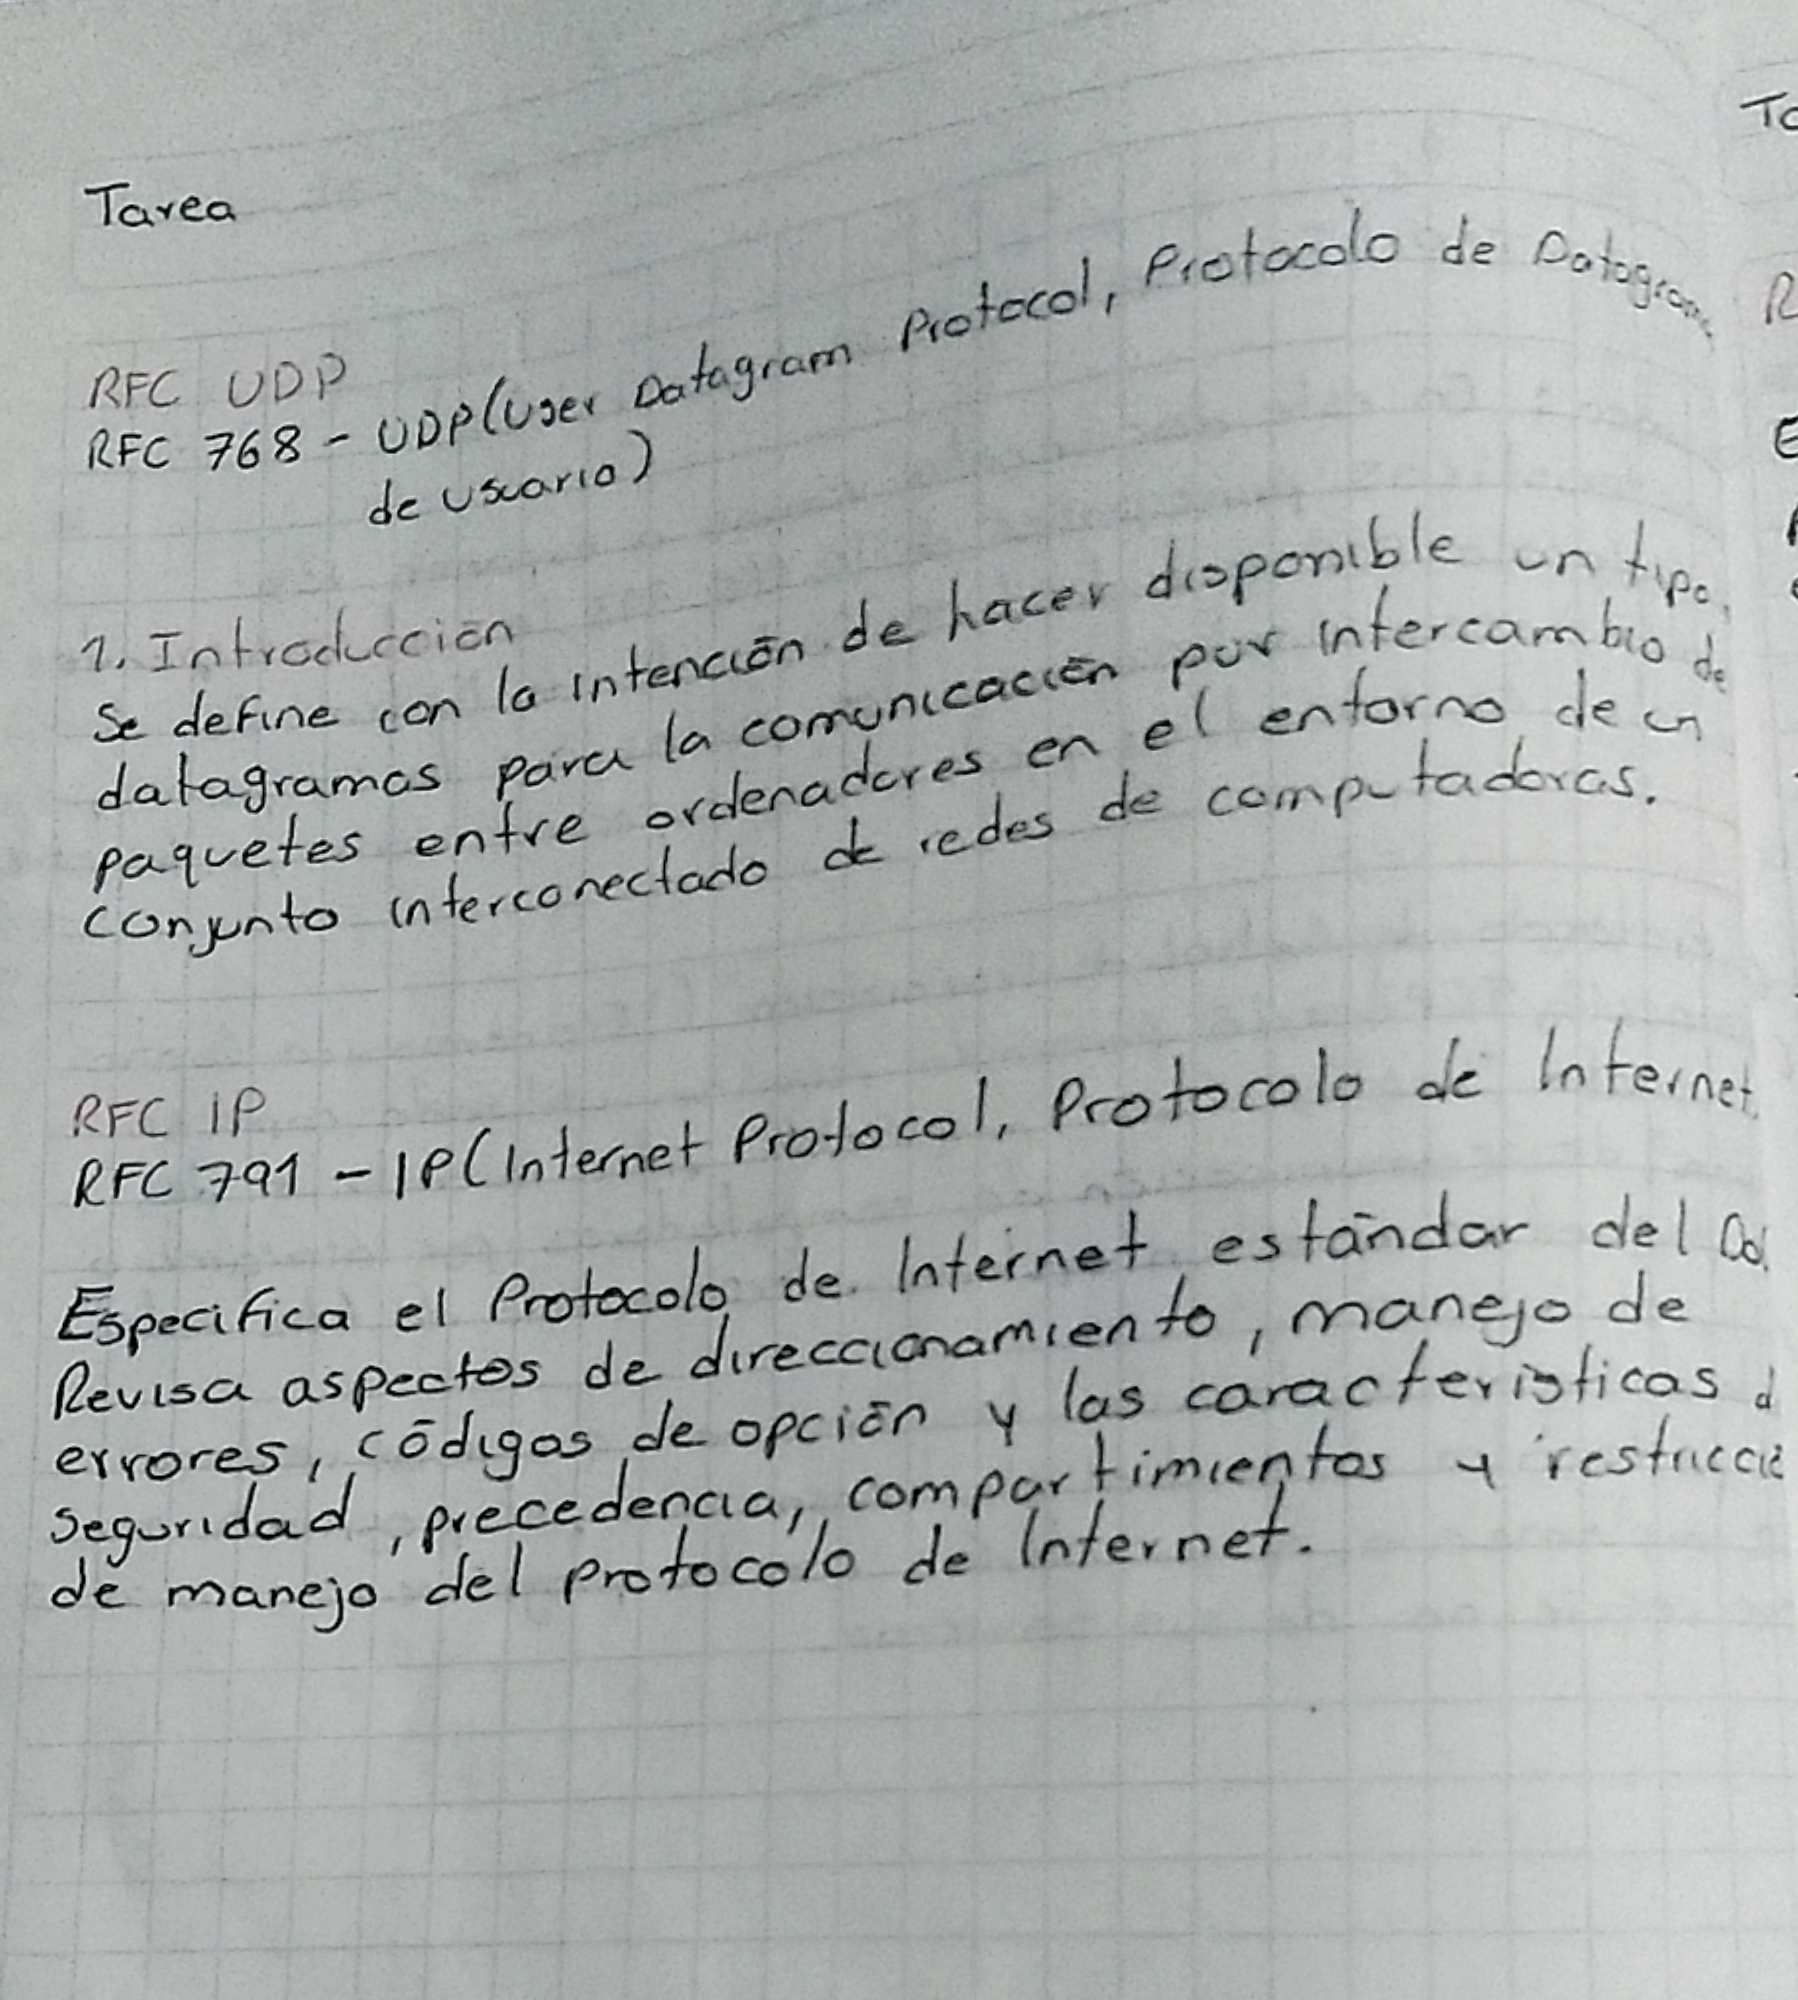 Tarea
RFC UDP
RFC 768 - UDP (User Datagram Protocol, Protocolo de Datagram
de usuario)
1. Introducción
Se define con la intención de hacer disponible un tipo
datagramas para la comunicación por intercambio de
paquetes entre ordenadores en el entorno de un
conjunto interconectado de redes de computadoras.
RFC IP
RFC 791 - IP (Internet Protocol, Protocolo de Internet
Especifica el Protocolo de Internet estándar del
Revisa aspectos de direccionamiento, manejo de
errores, códigos de opción y las características d
seguridad, precedencia, compartimientos y restriccio
de manejo del protocolo de Internet.